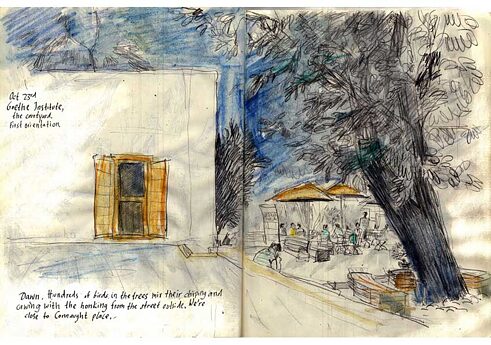 Oct 23rd
Goethe Institute,
the courtyard.
First orientation
Dawn, Hundreds of birds in the trees mix their chirping and
cawing with the honking from the street outside. We're
close to Connaught place.